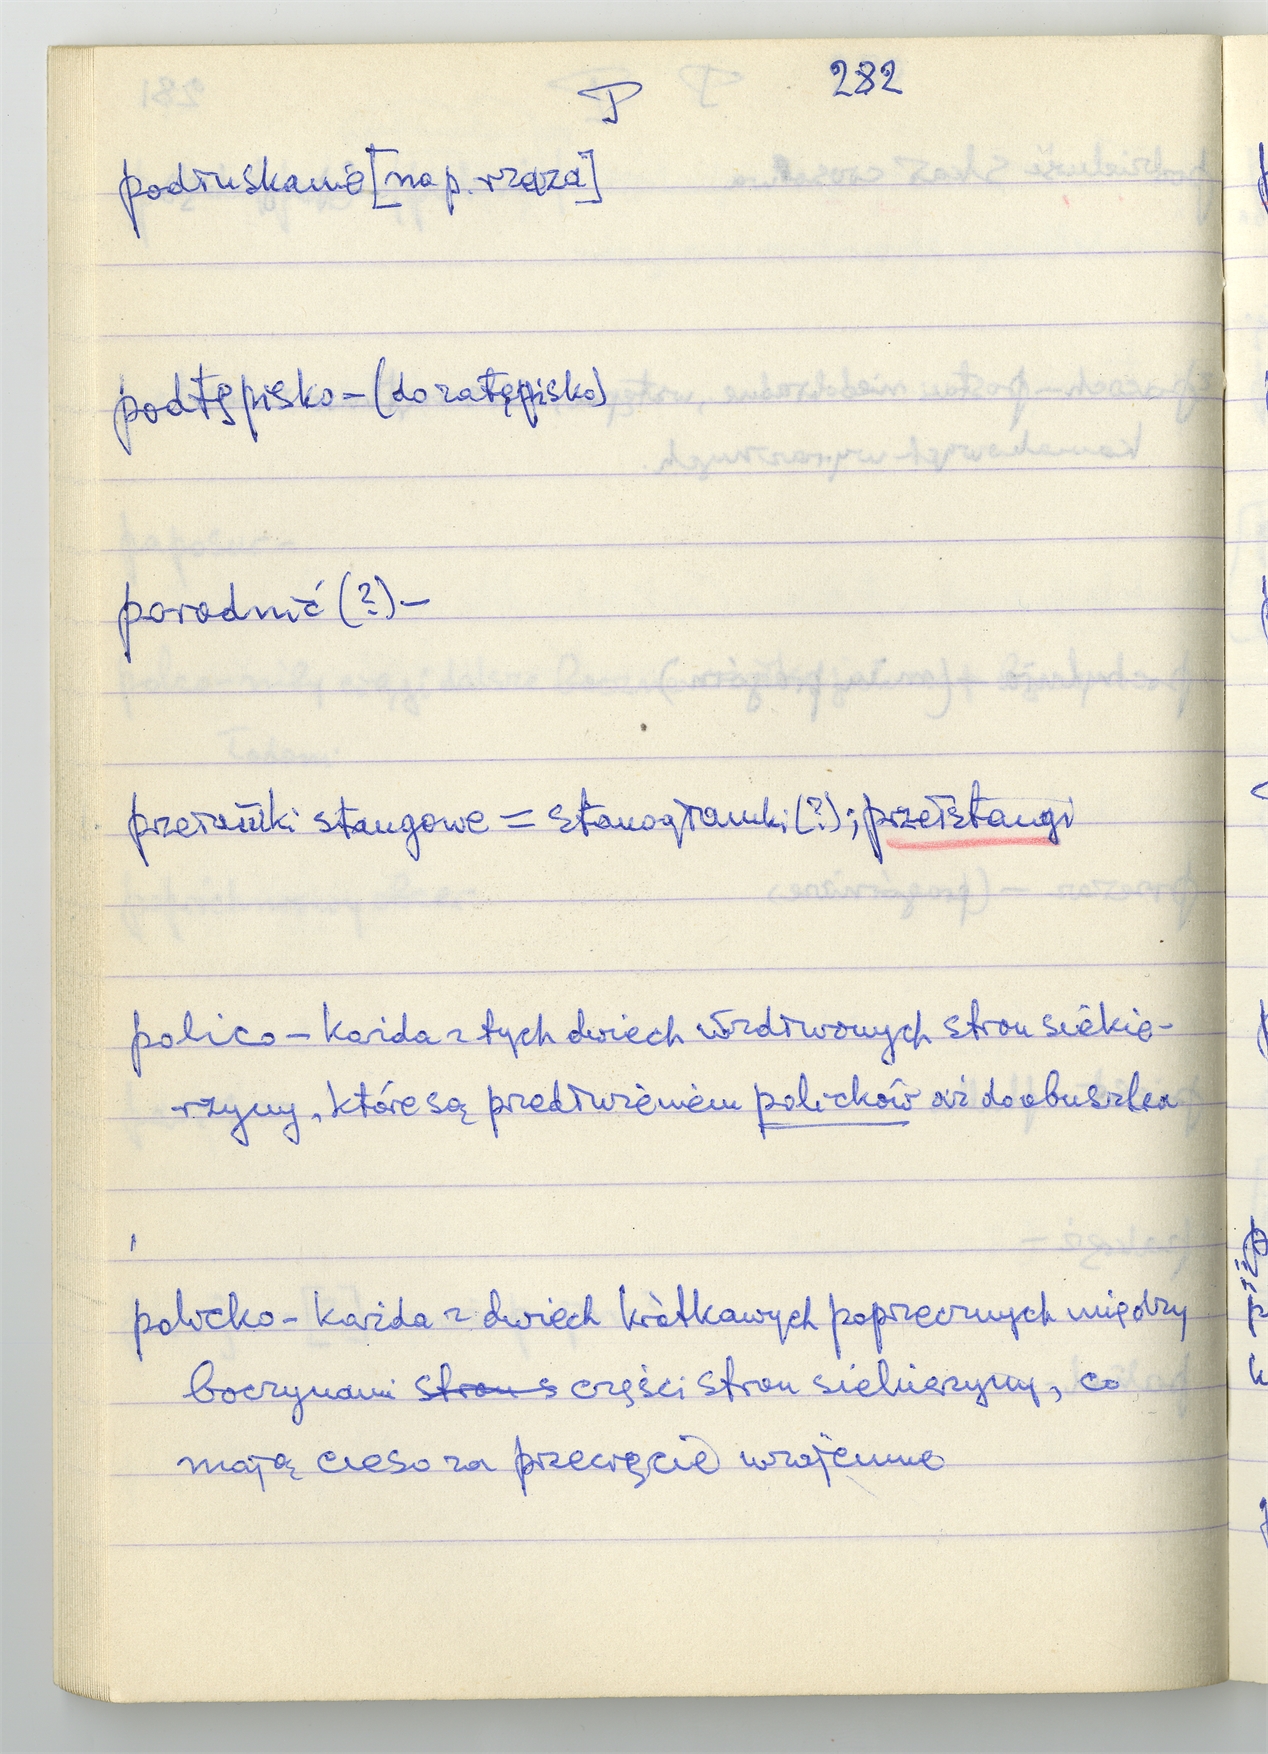 P 282
podłuskanie [na p. rząza]
podtępisko – (do zatępisko)
poradnić (?) –
przełamki stangowe = stanogłamki (?); przełstangi
polico – każda z tych dwiech wzdłużonych stron siekie-
rzyny, które są przedłużeniem policków aż do obuszka
policko – każda z dwiech krótkawych poprzecznych między
boczynami stron s części stron siekierzyny, co
mają cieso za przecięcie wzajemne